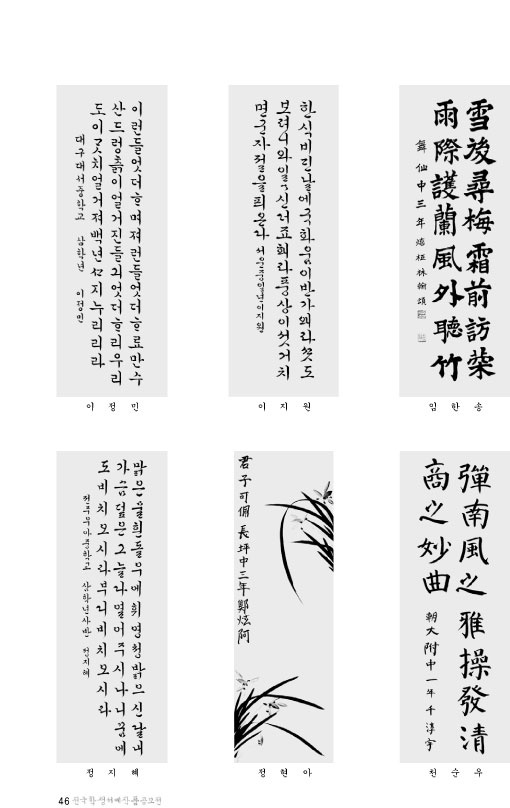 이런들엇더ᄒᆞ며져런들엇더ᄒᆞ료만수
산드렁츩이얼거진들긔엇더ᄒᆞ리우리
도이ᄀᆞᆺ치얼거져백년ᄭᆞ지누리리라
대구대서중학교 삼학년 이정민
이 정 민
한식비ᄀᆡᆫ날에국화움이반가왜라ᄭᅩᆺ도
보려니와일일신더죠홰라풍상이섯거치
면군자절을픠온다 서운중일년이지원
이 지 원
雪後尋梅霜前訪菊
雨際護蘭風外聽竹
舞仙中三年 林翰頌
임 한 송
맑은술흰돌우에휘영청밝으신달내
가슴덮은그늘다열어주시나니꿈에
도비치오시라부디비치오시라
전주우아중학교 삼학년사반 정지혜
정 지 혜
君子可佩 長坪中三年鄭炫阿
정 현 아
彈南風之雅操發淸
商之妙曲 朝大附中一年千淳宇
천 순 우
46